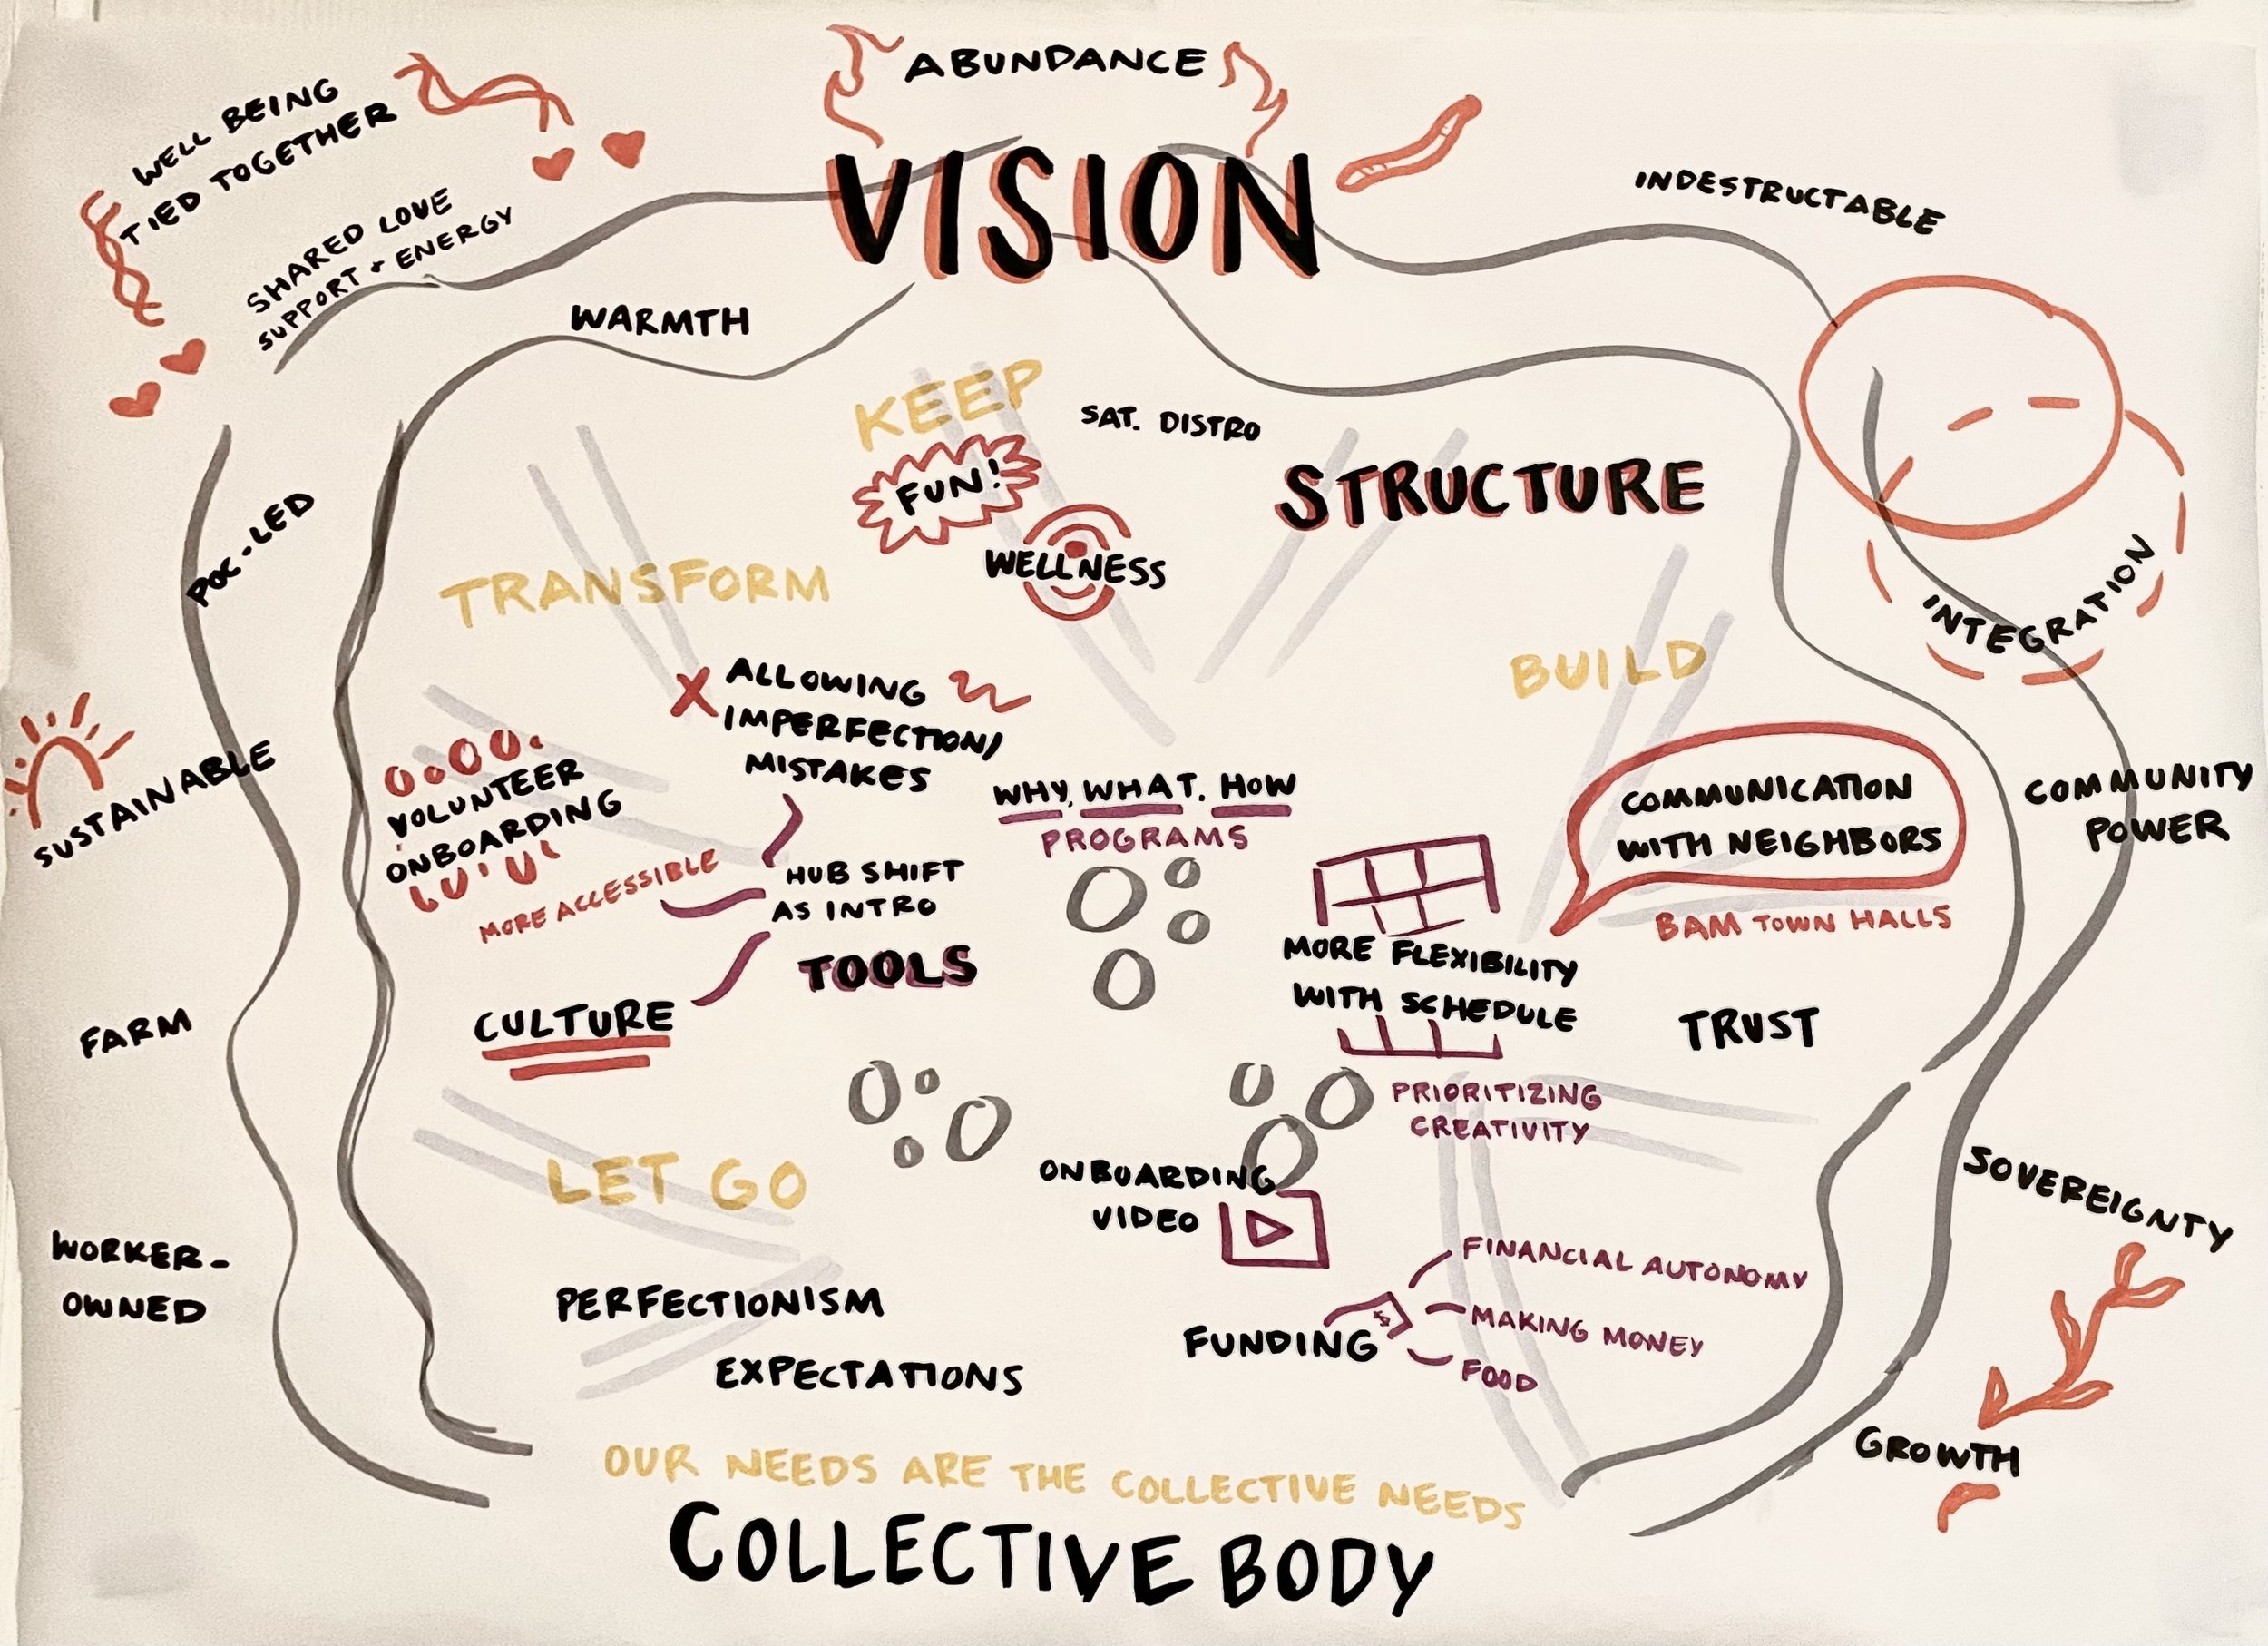 ABUNDANCE
VISION
WELL BEING
TIED TOGETHER
SHARED LOVE
SUPPORT + ENERGY
INDESTRUCTABLE
WARMTH
KEEP
FUN!
SAT. DISTRO
WELLNESS
STRUCTURE
INTEGRATION
POC-LED
TRANSFORM
BUILD
ALLOWING
IMPERFECTION/
MISTAKES
SUSTAINABLE
VOLUNTEER
ONBOARDING
MORE ACCESSIBLE
HUB SHIFT
AS INTRO
WHY, WHAT, HOW
PROGRAMS
COMMUNICATION
WITH NEIGHBORS
BAM TOWN HALLS
COMMUNITY
POWER
TOOLS
CULTURE
MORE FLEXIBILITY
WITH SCHEDULE
PRIORITIZING
CREATIVITY
TRUST
FARM
LET GO
PERFECTIONISM
EXPECTATIONS
ONBOARDING
VIDEO
SOVEREIGNTY
WORKER-
OWNED
FUNDING
$
FINANCIAL AUTONOMY
MAKING MONEY
FOOD
GROWTH
OUR NEEDS ARE THE COLLECTIVE NEEDS
COLLECTIVE BODY